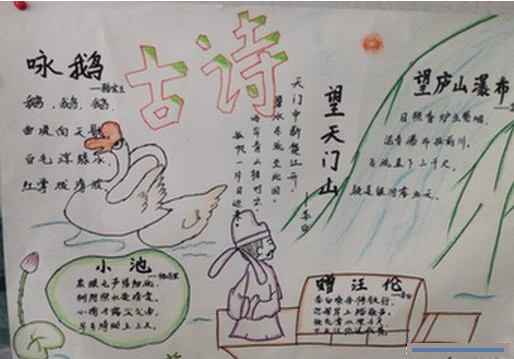 古诗
咏鹅
—骆宾王
鹅,鹅,鹅,
曲项向天歌
白毛浮绿水,
红掌拨清波。
望天门山
—李白
天门中断楚江开,
碧水东流至此回。
两岸青山相对出,
孤帆一片日边来
望庐山瀑布
日照香炉生紫烟,
遥看瀑布挂前川。
飞流直下三千尺,
疑是银河落九天。
小池
—杨万里
泉眼无声惜细流,
树阴照水爱晴柔。
小荷才露尖尖角,
早有蜻蜓立上头。
赠汪伦
—李白
李白乘舟将欲行,
忽闻岸上踏歌声。